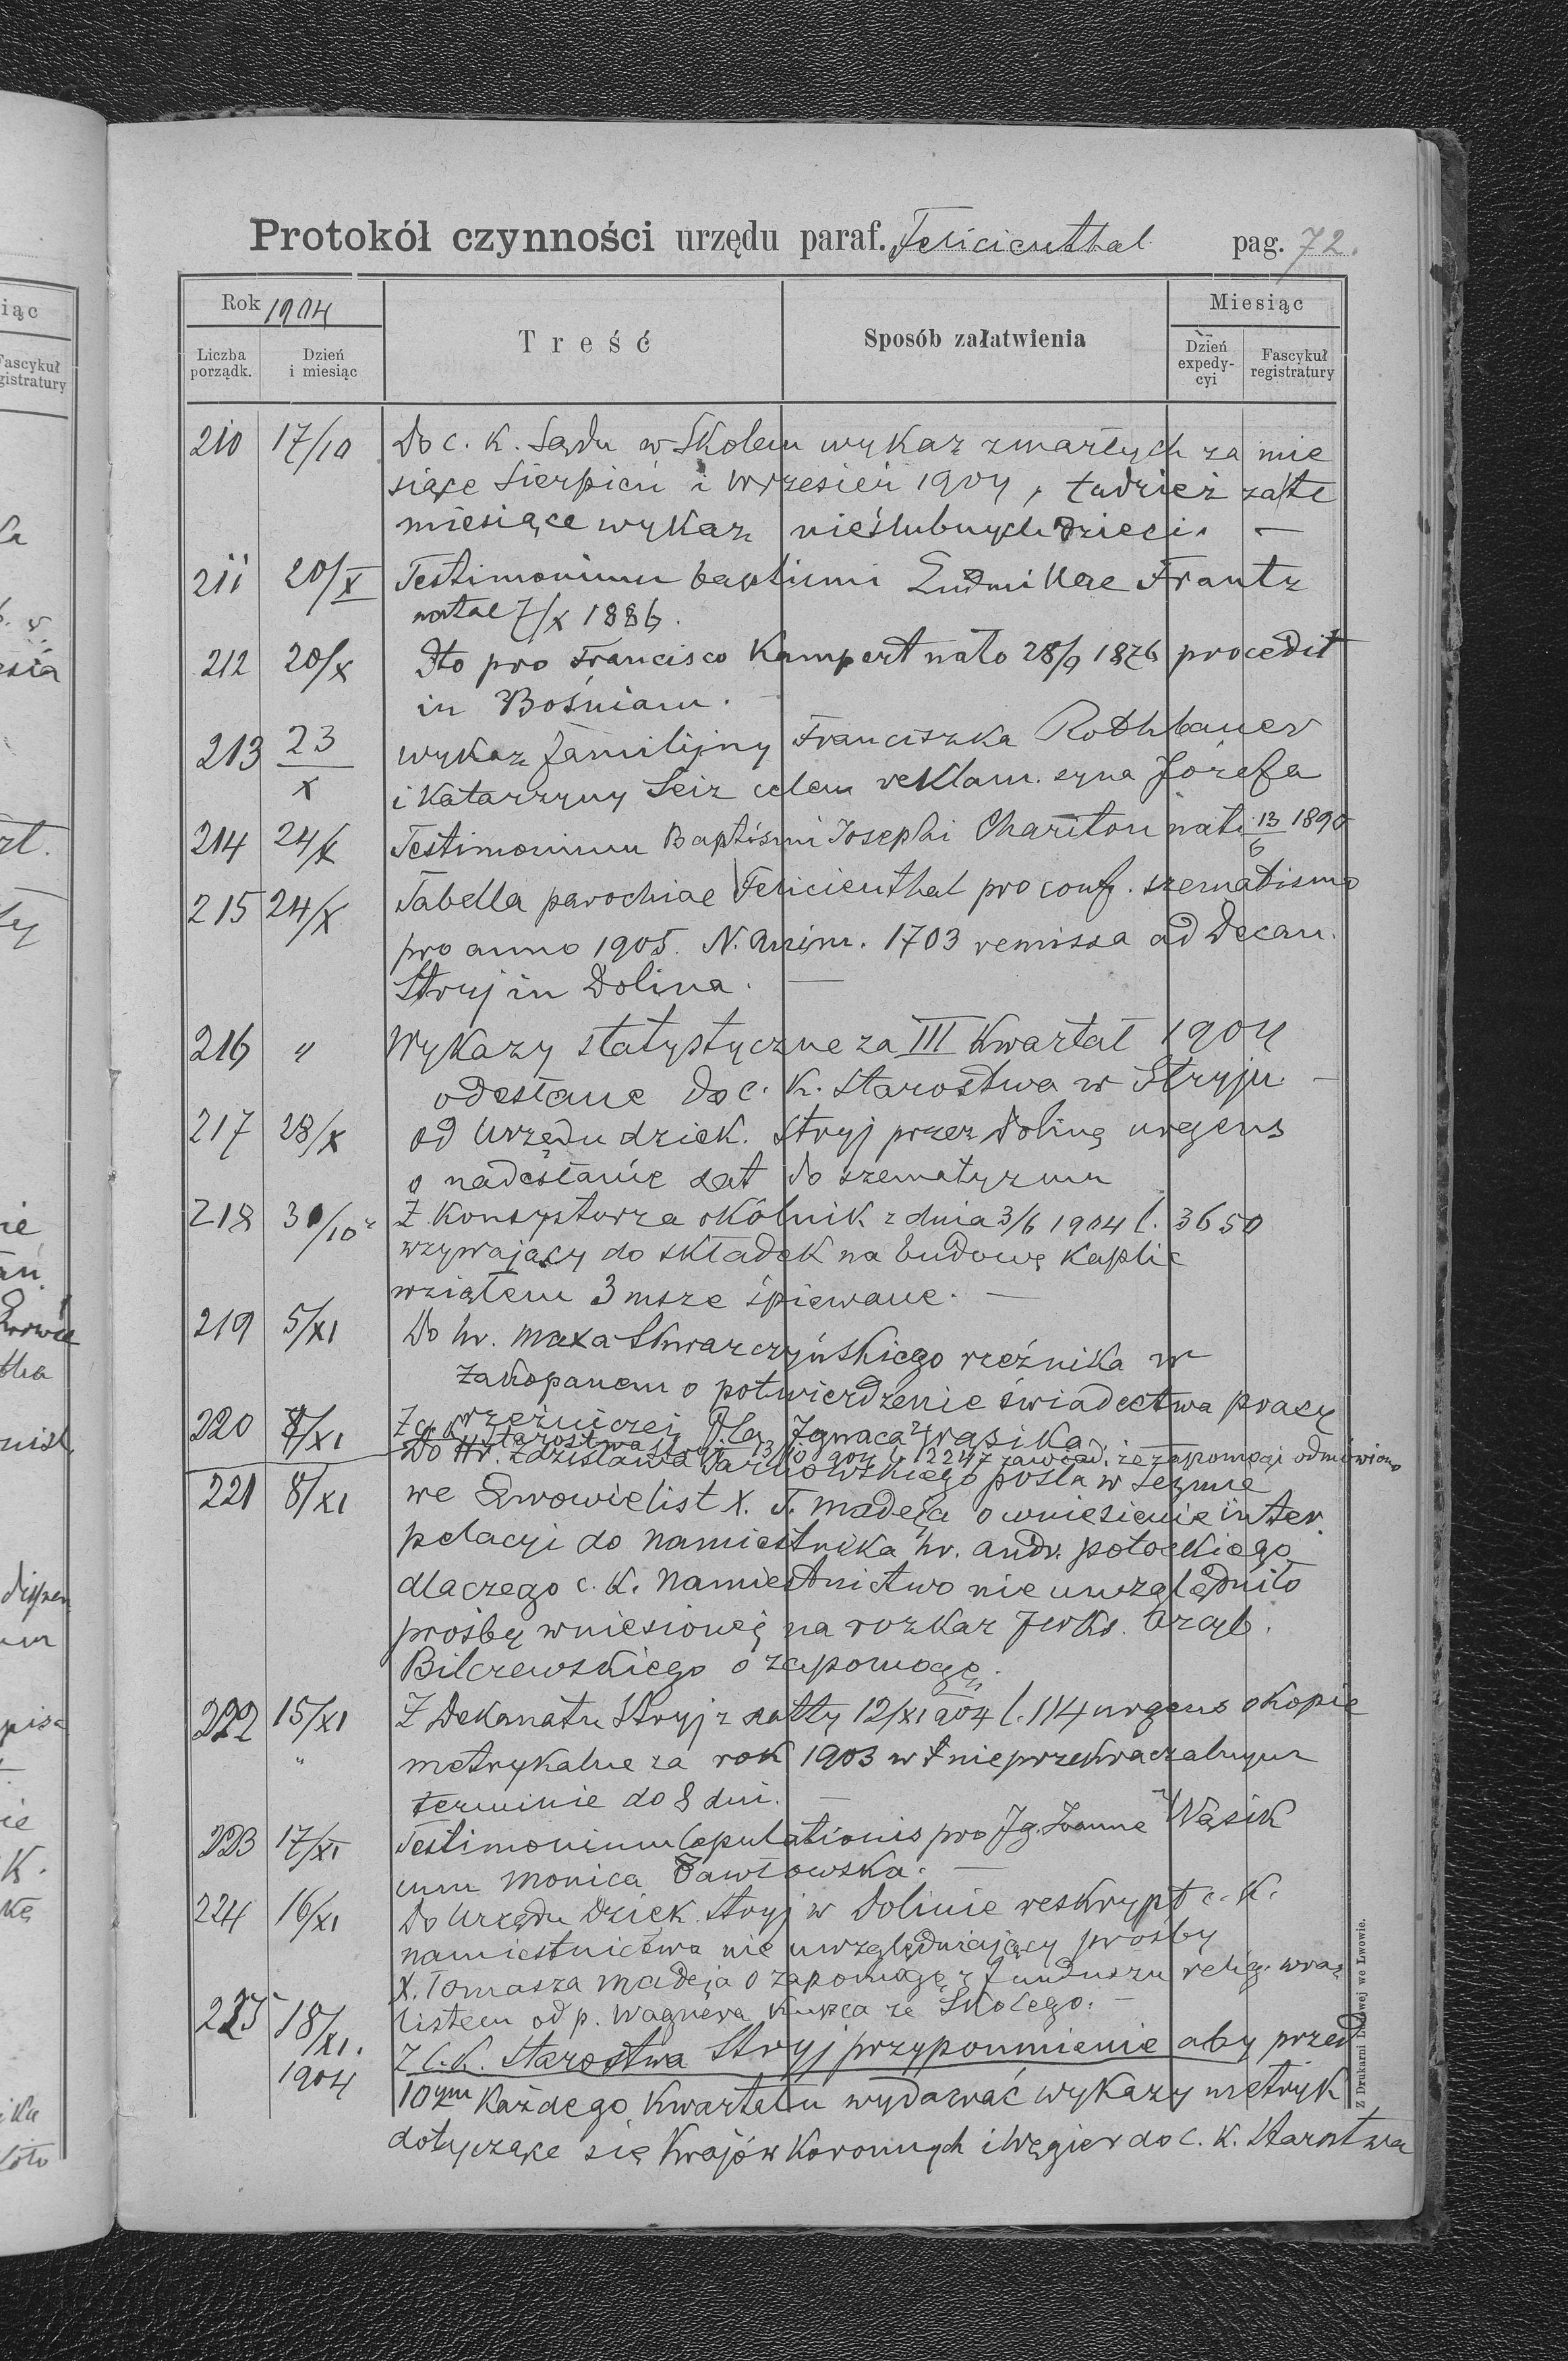 Protokół czynności urzędu paraf. Felicienthal pag. 72.
Rok 1904 Treść Sposób załatwienia Miesiąc
Liczba porządk. Dzień i miesiąc Dzień expedy-cyi Fascykuł registratury
210 17/10 Do c. k. Sądu w Skolem wykaz zmarłych za mie
siące Sierpień i Wrzesień 1904, tudzież za te
miesiące wykaz nieślubnych dzieci. —
211 20/X Testimonium baptismi Ludmillae Frantz
natae 7/X 1886.
212 20/X Dto pro Francisco Kampert nato 28/9 1876 procedit
in Bośniam.
213 23/X Wykaz familijny Franciszka Rothbauer
i Katarzyny Seiz celem reklam. syna Józefa
214 24/X Testimonium Baptismi Josephi Chariton nati 13/6 1890
215 24/X Tabella parochiae Felicienthal pro conf. szematismo
pro anno 1905. N. Anim. 1703 remissa ad Decan.
Stryj in Dolina. —
216 " Wykazy statystyczne za III Kwartał 1904
odesłane do c. k. Starostwa w Stryju. —
217 28/X od Urzędu dziek. Stryj przez Dolinę urgens
o nadesłanie dat do szematyzmu
218 30/10 Z Konsystorza okólnik z dnia 3/6 1904 l. 3650
wzywający do składek na budowę kaplic
wziąłem 3 msze śpiewane. —
219 5/XI Do hr. Maxa Skwarczyńskiego rzeźnika w
Zakopanem o potwierdzenie świadectwa pracy
rzeźniczej dla Ignaca Wąsika.
220 7/XI Z c. k. Starostwa Stryj 13/10 904 l. 12247 zawiad. że zapomogi odmówiono
221 8/XI Do Hr. Zdzisława Tarnowskiego posła w Sejmie
we Lwowie list X. T. Madeja o wniesienie inter
pelacyi do Namiestnika hr. Andr. Potockiego
dlaczego c. k. Namiestnictwo nie uwzględniło
prośby wniesionej na rozkaz Arcyb.
Bilczewskiego o zapomogę.
222 15/XI Z Dekanatu Stryj z datty 12/XI 904 l. 114 urgens o kopie
" metrykalne za rok 1903 w nieprzekraczalnym
terminie do 8 dni. —
223 17/XI Testimonium Copulationis pro Ig. Joanne Wąsik
cum Monica Pawłowska. —
224 16/XI Do Urzędu Dziek. Stryj w Dolinie reskrypt c. k.
namiestnictwa nie uwzględniający prośby
X. Tomasza Madeja o zapomogę z funduszu relig. wraz
listem od p. Wagnera kupca ze Skolego. —
225 18/XI. 1904 Z C. K. Starostwa Stryj przypomnienie aby przed
10ym każdego kwartału wydawać wykazy metryk
dotyczące się Krajów Koronnych i Węgier do c. k. Starostwa
Z Drukarni Ludowej we Lwowie.